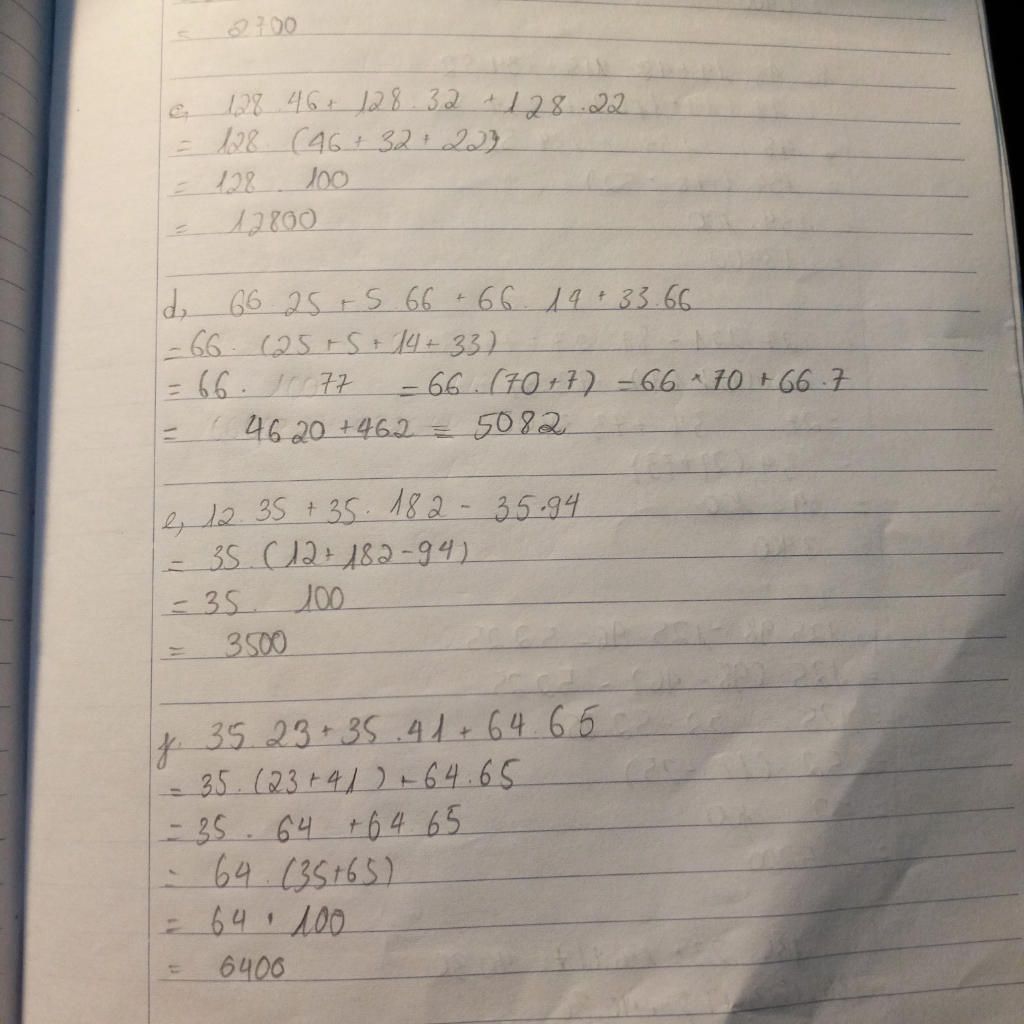 = 8700
c, 128.46+ 128.32 +128.22
= 128. (46 + 32 + 22)
= 128 . 100
= 12800
d, 66.25 + 5.66 + 66. 14 + 33.66
=66. (25 +5 + 14+ 33)
= 66. 77 = 66.(70+7) =66 × 70 +66.7
= 4620 +462 = 5082
e, 12.35 +35. 182 - 35.94
= 35.(12+182-94)
= 35. 100
= 3500
f. 35.23+35.41+64.65
= 35.(23+41) +64.65
= 35. 64 +64.65
= 64.(35+65)
= 64 . 100
= 6400